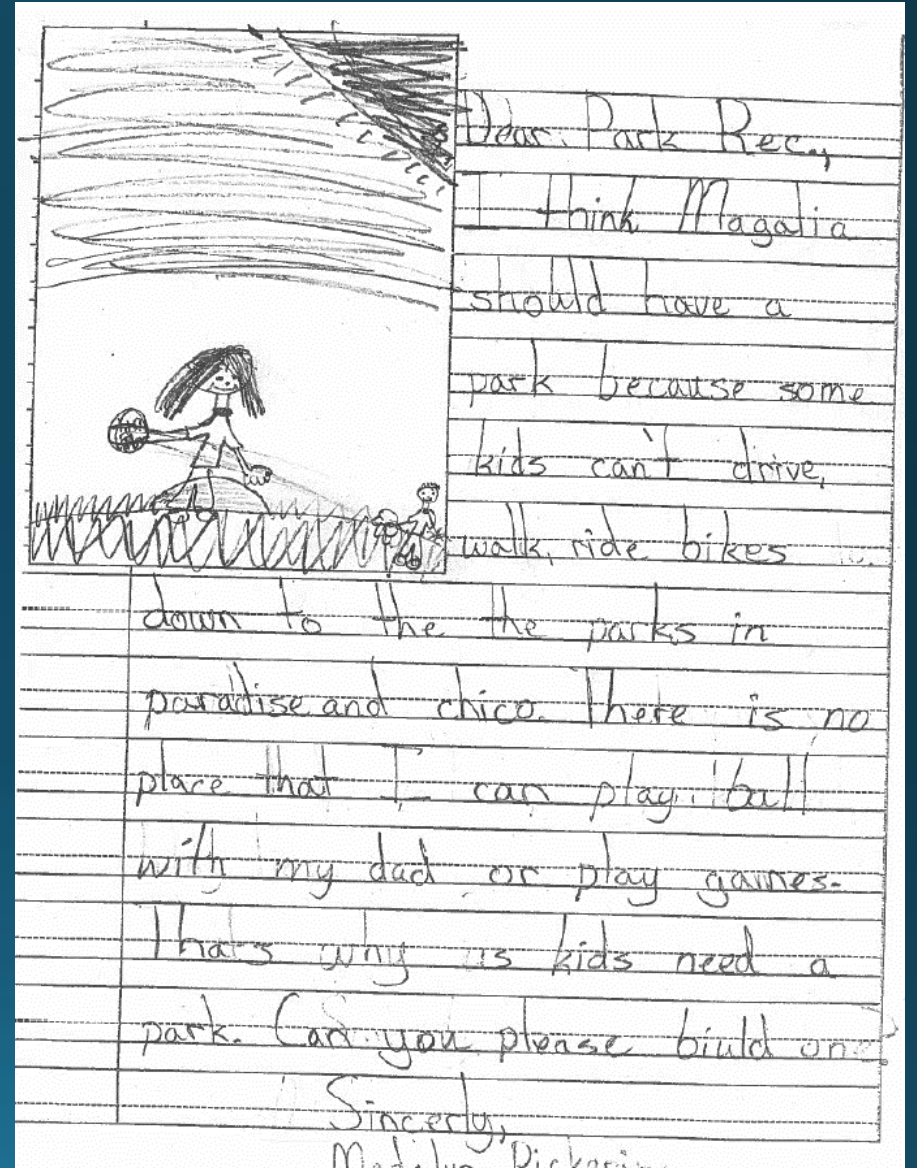 Dear Park Rec.,
I think Magalia
should have a
park because some
kids can't drive,
walk, ride bikes
down to the the parks in
paradise and chico. There is no
place that I can play ball
with my dad or play games.
Thats why us kids need a
park. Can you please biuld one?
Sincerly,